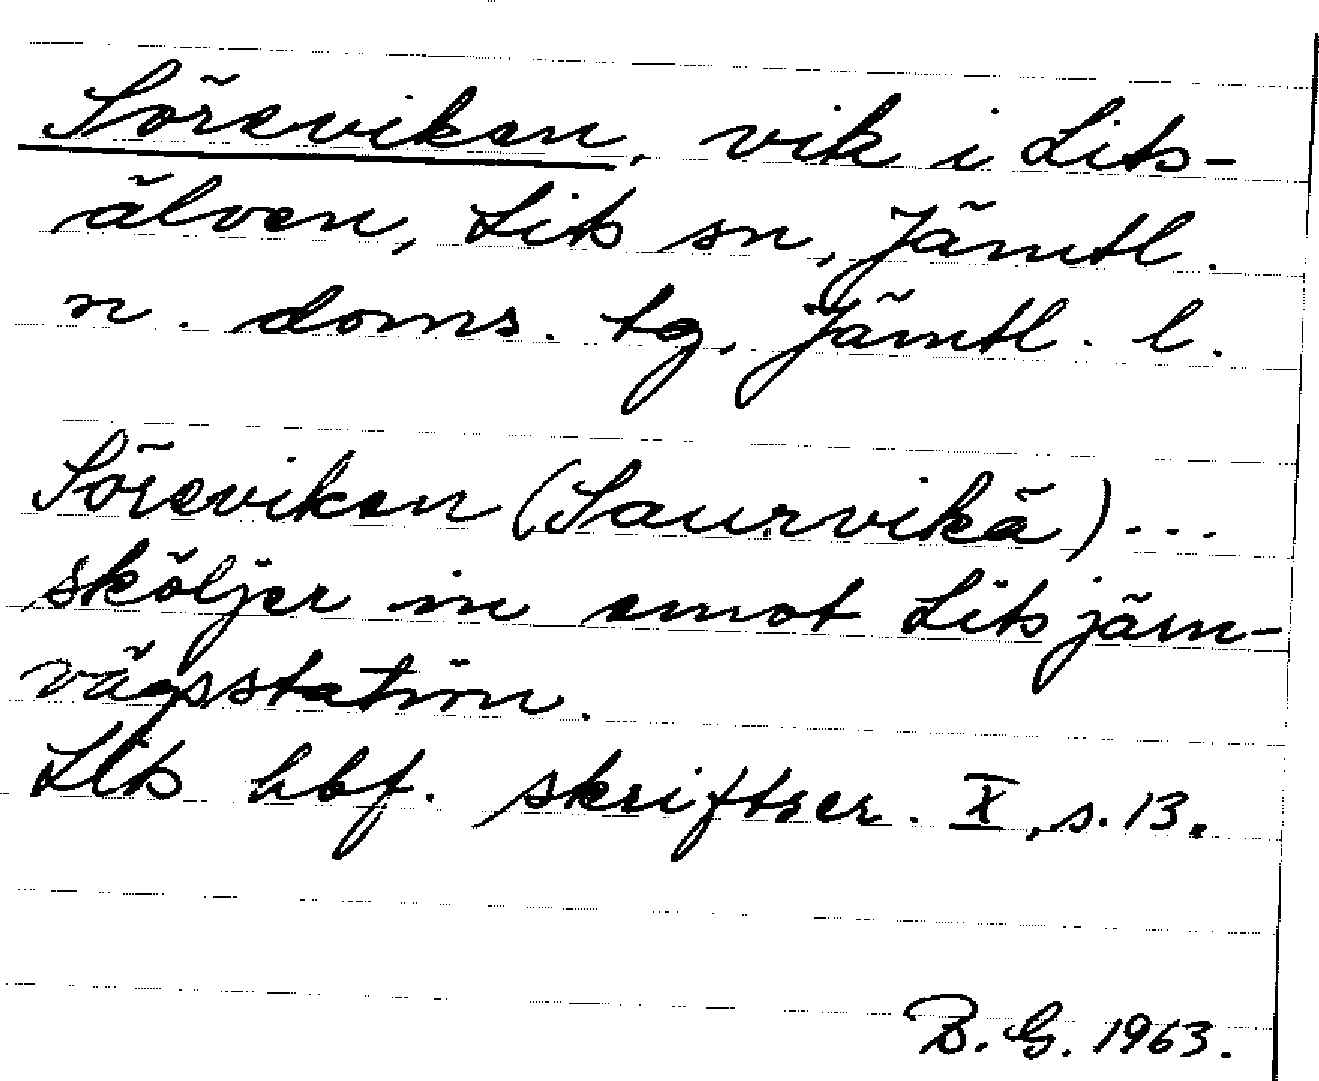 Sörsviken, vik i Lits-
älven, Lits sn, Jämtl.
n. doms. tg, Jämtl. l.
Sörsviken (Saurvikä)...
sköljer in emot Lits järn-
vägsstation.
Lits hbf. skriftser. X, s. 13.
B. G. 1963.